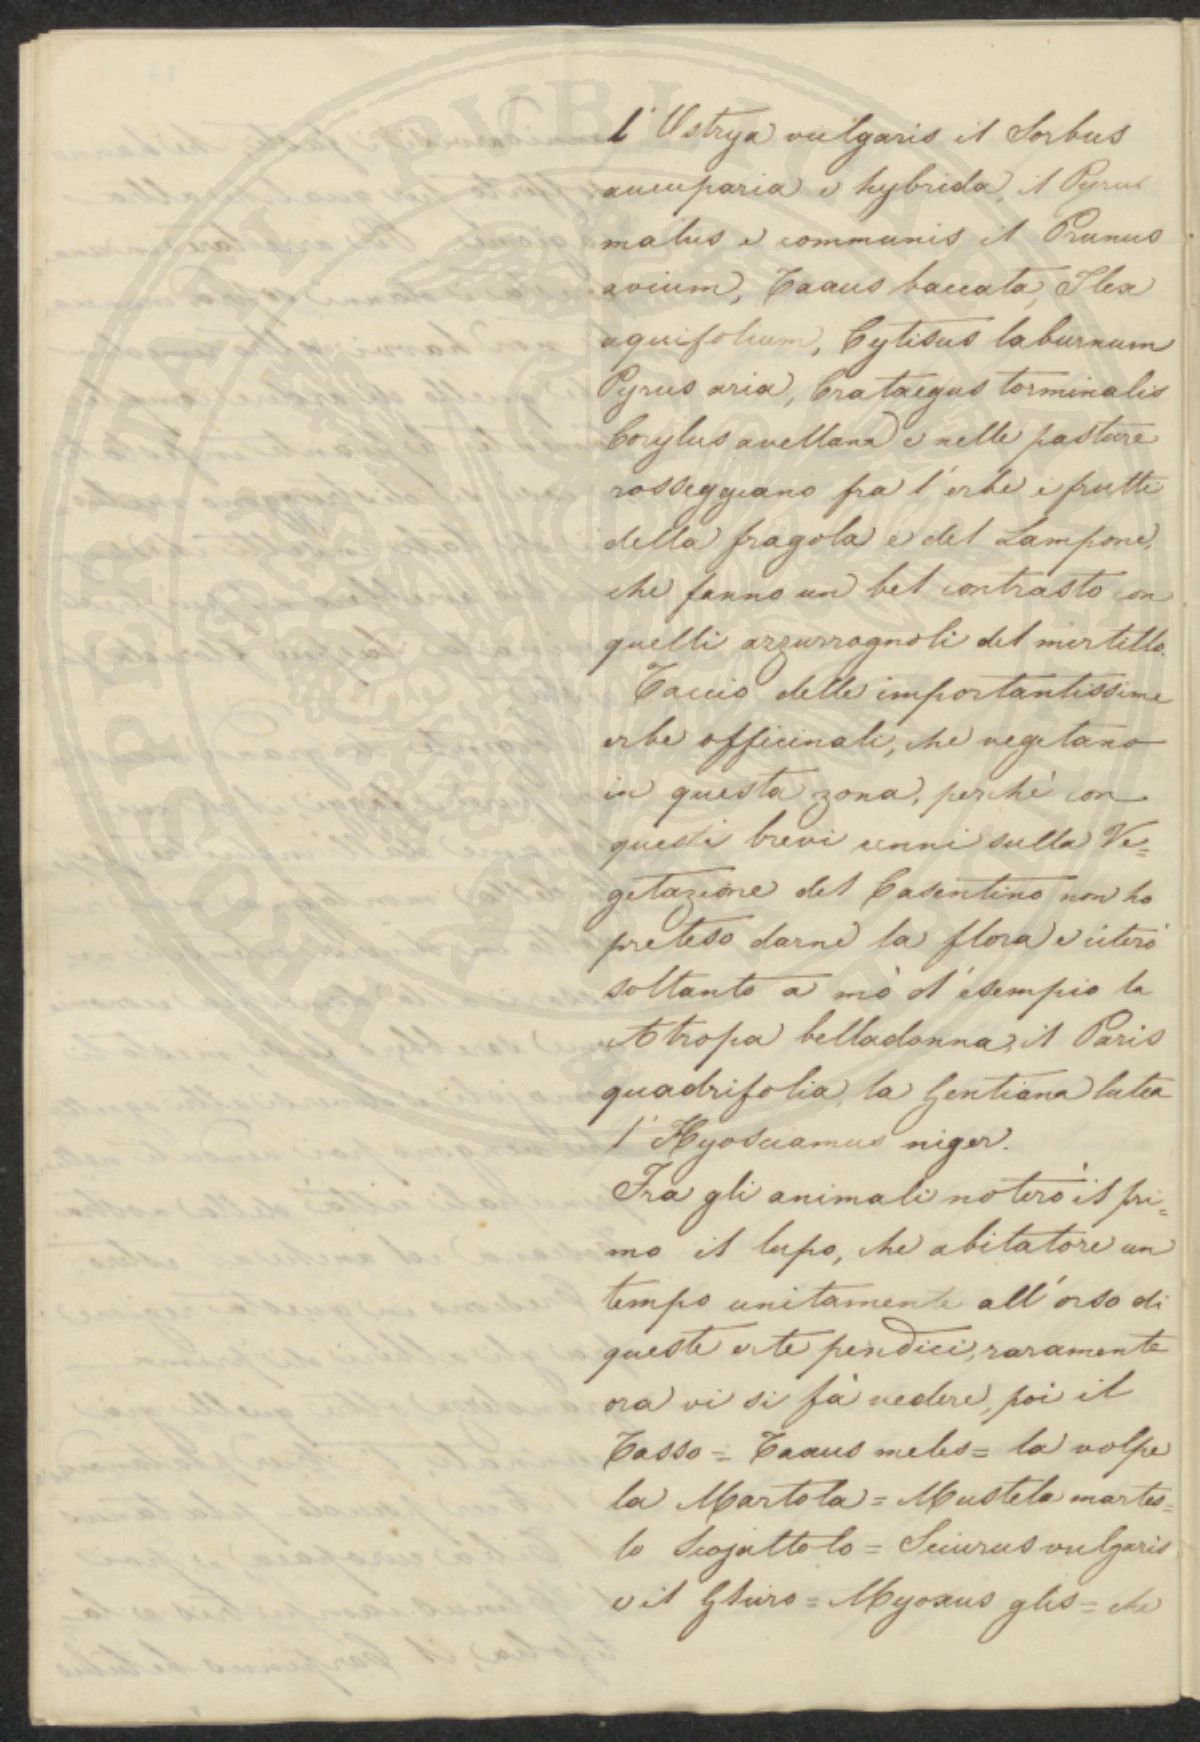 l'Ostrya vulgaris il Sorbus
aucuparia e hybrida, il Pyrus
malus e communis il Prunus
avium, Taxus baccata, Ilex
aquifolium, Cytisus laburnum
Pyrus aria, Crataegus torminalis
Corylus avellana e nelle pasture
rosseggiano fra l'erbe i frutti
della fragola e del Lampone,
che fanno un bel contrasto con
quelli azzurrognoli del mirtillo.
Taccio delle importantissime
erbe officinali, che vegetano
in questa zona, perchè con
questi brevi cenni sulla Ve=
getazione del Casentino non ho
preteso darne la flora e citerò
soltanto a mò d'esempio la
Atropa belladonna, il Paris
quadrifolia, la Gentiana lutea
l'Hyosciamus niger.
Fra gli animali noterò il pri=
mo il lupo, che abitatore un
tempo unitamente all'orso di
queste erte pendici, raramente
ora vi si fà vedere, poi il
Tasso = Taxus meles = la volpe
la Martola = Mustela martes =
lo Scojattolo = Sciurus vulgaris
e il Ghiro = Myoxus glis = che
PROSPERINATI PUBLICAE UTILITATI